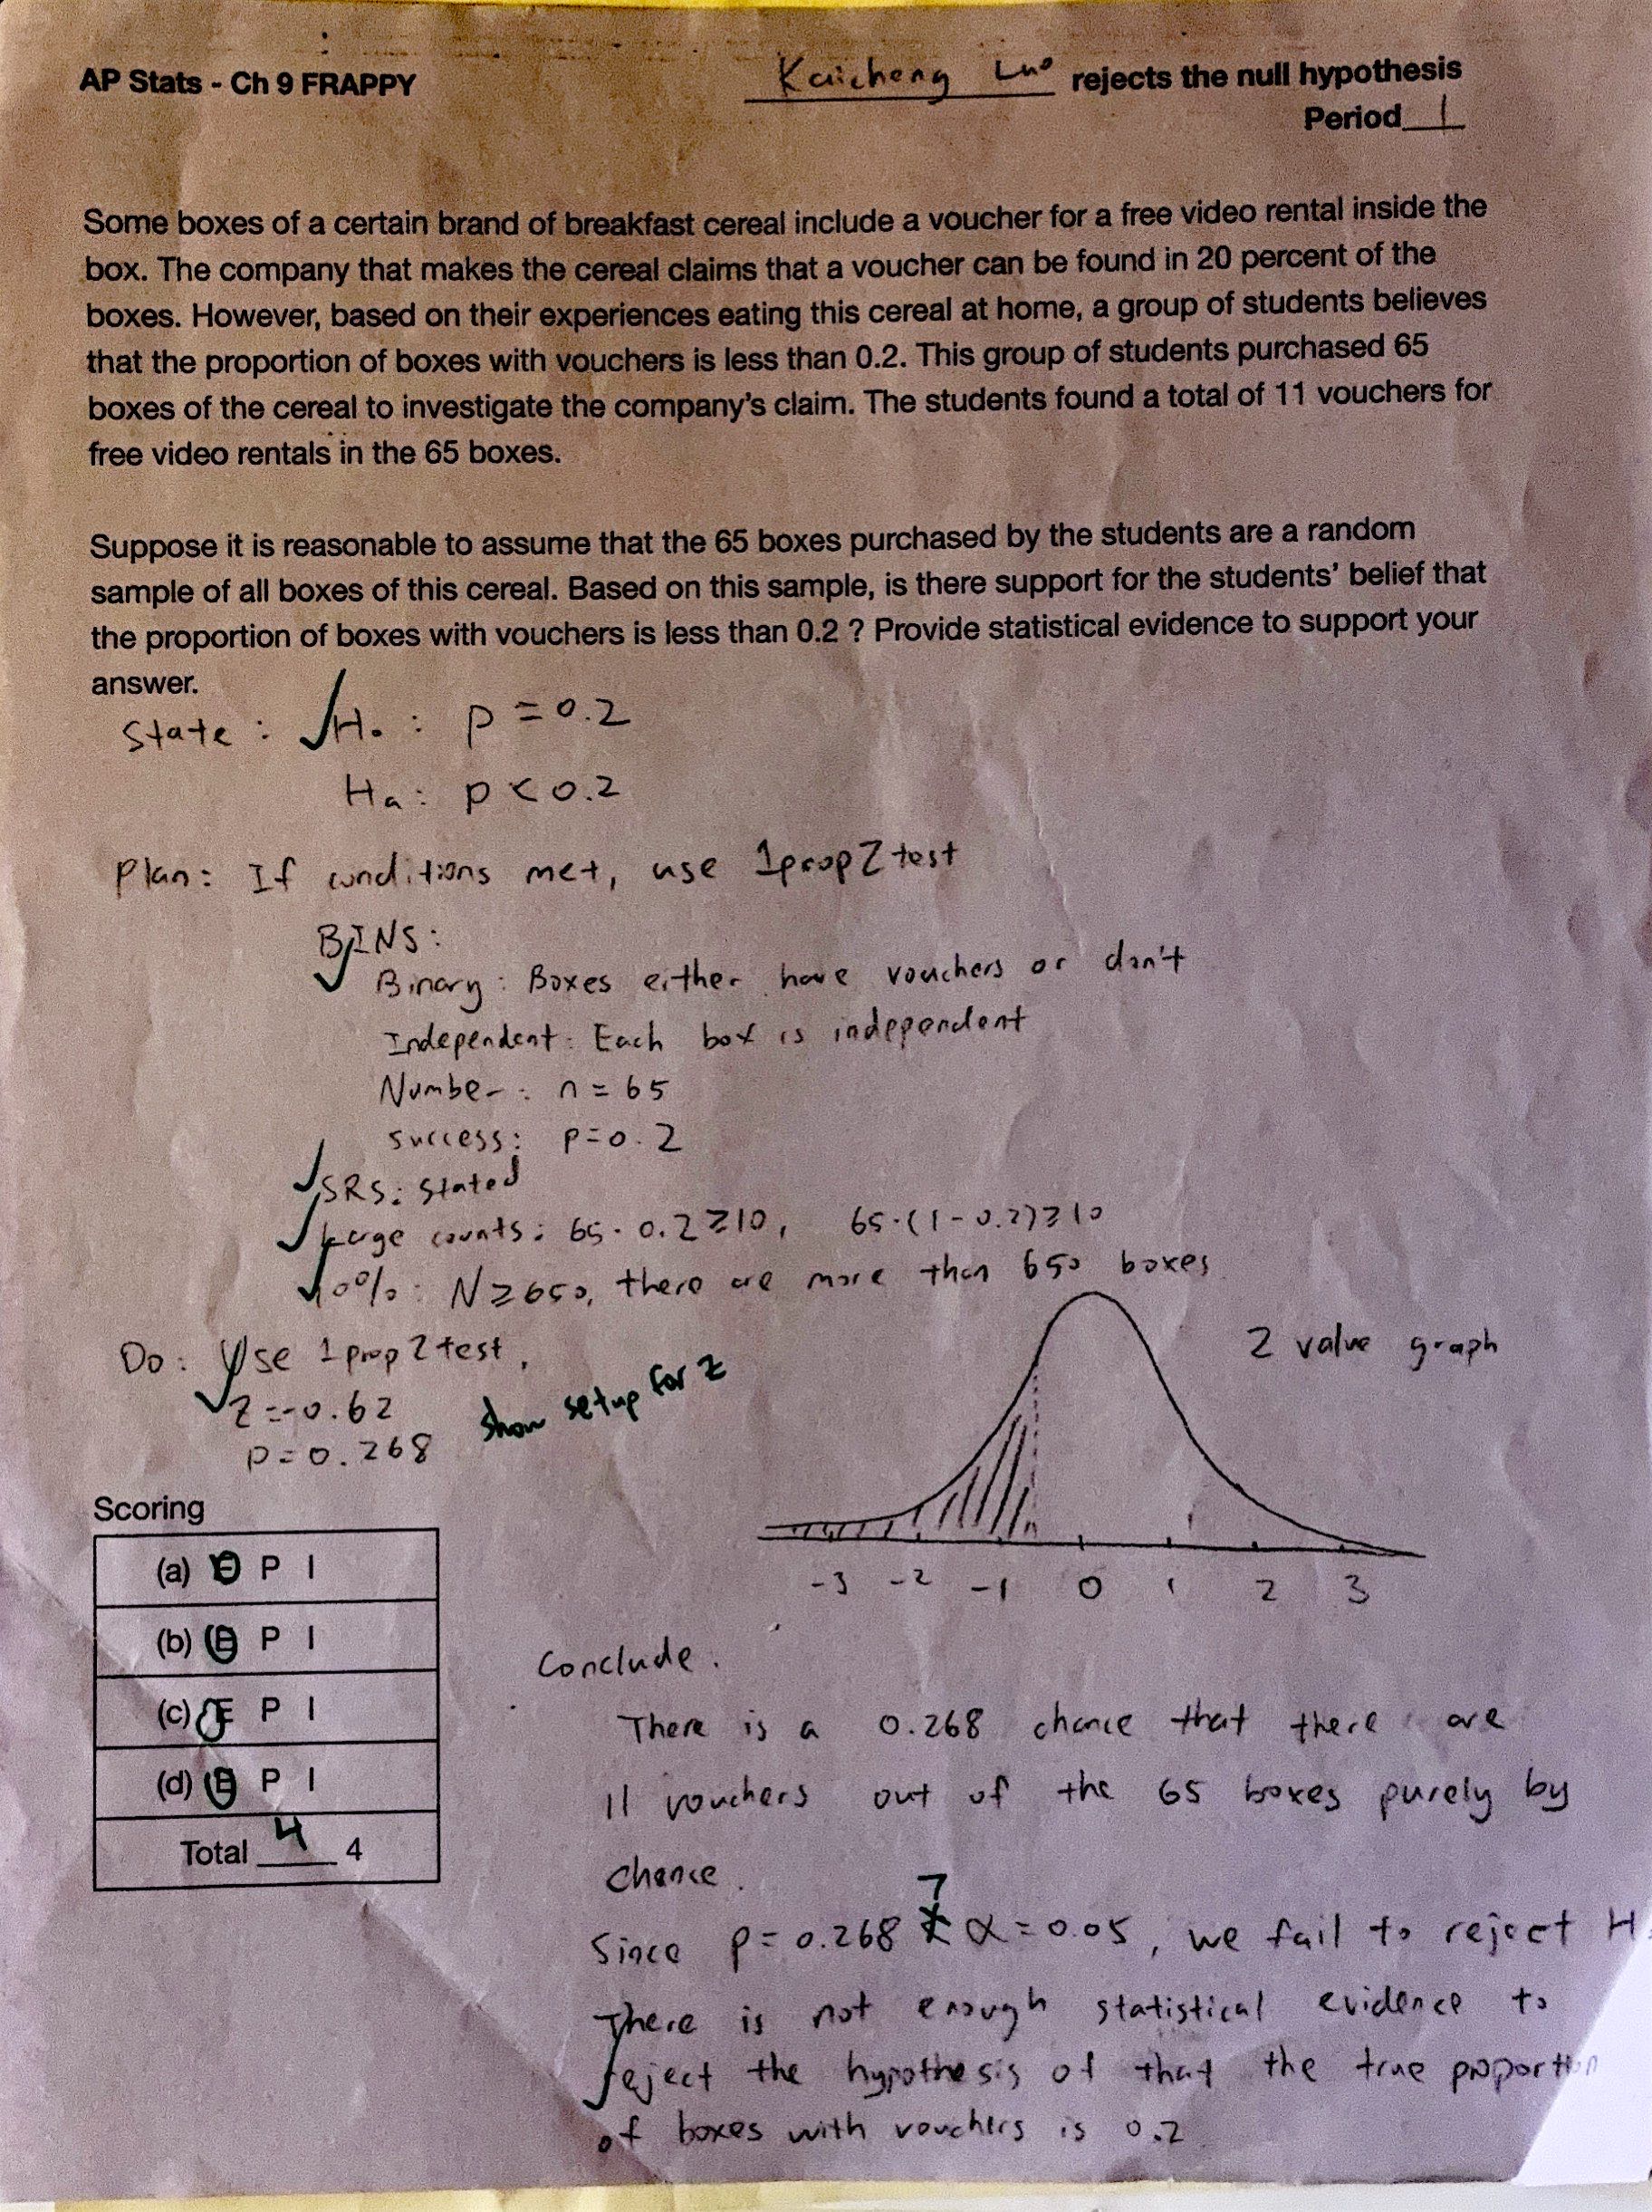 AP Stats - Ch 9 FRAPPY
Kaicheng Luo rejects the null hypothesis
Period 1
Some boxes of a certain brand of breakfast cereal include a voucher for a free video rental inside the
box. The company that makes the cereal claims that a voucher can be found in 20 percent of the
boxes. However, based on their experiences eating this cereal at home, a group of students believes
that the proportion of boxes with vouchers is less than 0.2. This group of students purchased 65
boxes of the cereal to investigate the company's claim. The students found a total of 11 vouchers for
free video rentals in the 65 boxes.
Suppose it is reasonable to assume that the 65 boxes purchased by the students are a random
sample of all boxes of this cereal. Based on this sample, is there support for the students' belief that
the proportion of boxes with vouchers is less than 0.2 ? Provide statistical evidence to support your
answer.
State : √ H₀ : p = 0.2
Ha : p < 0.2
Plan: If conditions met, use 1propZtest
BINS:
Binary : Boxes either have vouchers or don't
Independent : Each box is independent
Number : n = 65
success: p=0.2
SRS: stated
Large counts: 65·0.2≥10, 65·(1-0.2)≥10
10%: N≥650, there are more than 650 boxes
Do: Use 1propZtest,
Z=-0.62
p=0.268
show setup for z
Z value graph
-3 -2 -1 0 1 2 3
Scoring
(a) E P I
(b) E P I
(c) E P I
(d) E P I
Total 4 4
Conclude.
There is a 0.268 chance that there are
11 vouchers out of the 65 boxes purely by
chance.
Since p=0.268 > α=0.05, we fail to reject H
There is not enough statistical evidence to
reject the hypothesis of that the true proportion
of boxes with vouchers is 0.2